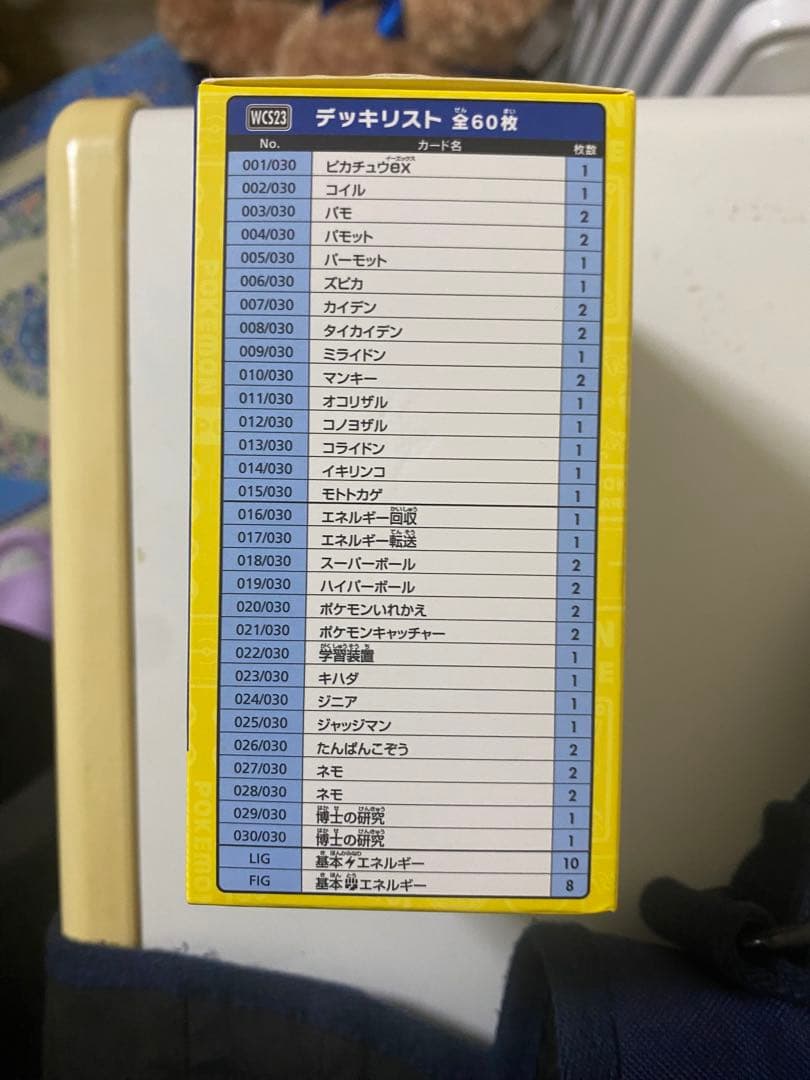 WCS23 デッキリスト 全60枚
No. カード名 枚数
001/030 ピカチュウex 1
002/030 コイル 1
003/030 パモ 2
004/030 パモット 2
005/030 パーモット 1
006/030 ズピカ 1
007/030 カイデン 2
008/030 タイカイデン 2
009/030 ミライドン 1
010/030 マンキー 2
011/030 オコリザル 1
012/030 コノヨザル 1
013/030 コライドン 1
014/030 イキリンコ 1
015/030 モトトカゲ 1
016/030 エネルギー回収 1
017/030 エネルギー転送 1
018/030 スーパーボール 2
019/030 ハイパーボール 2
020/030 ポケモンいれかえ 2
021/030 ポケモンキャッチャー 2
022/030 学習装置 1
023/030 キハダ 1
024/030 ジニア 1
025/030 ジャッジマン 1
026/030 たんぱんこぞう 2
027/030 ネモ 2
028/030 ネモ 2
029/030 博士の研究 1
030/030 博士の研究 1
LIG 基本エネルギー 10
FIG 基本エネルギー 8
POKEMON
POKEMO